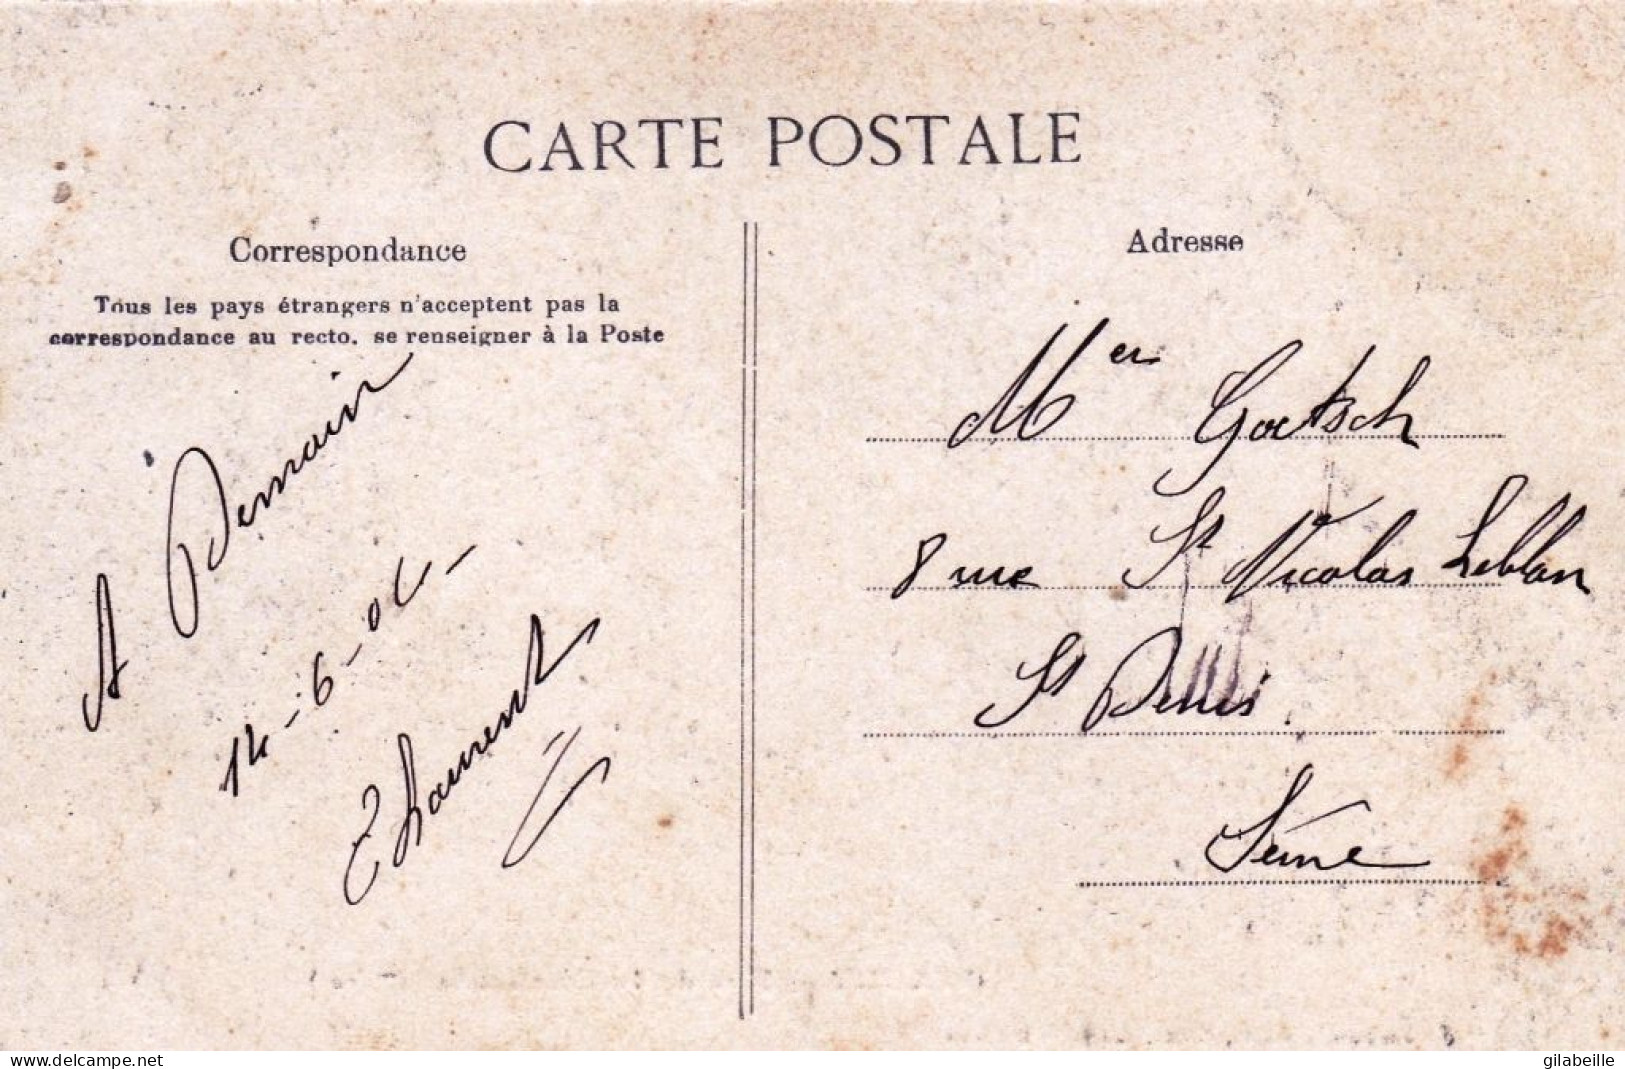 CARTE POSTALE
Correspondance
Tous les pays étrangers n'acceptent pas la
correspondance au recto, se renseigner à la Poste
A Demain
14-6-06-
E Laurent
Adresse
M er Goetsch
8 rue St Nicolas Leblan
St Denis
Seine
www.delcampe.net
gilabeille